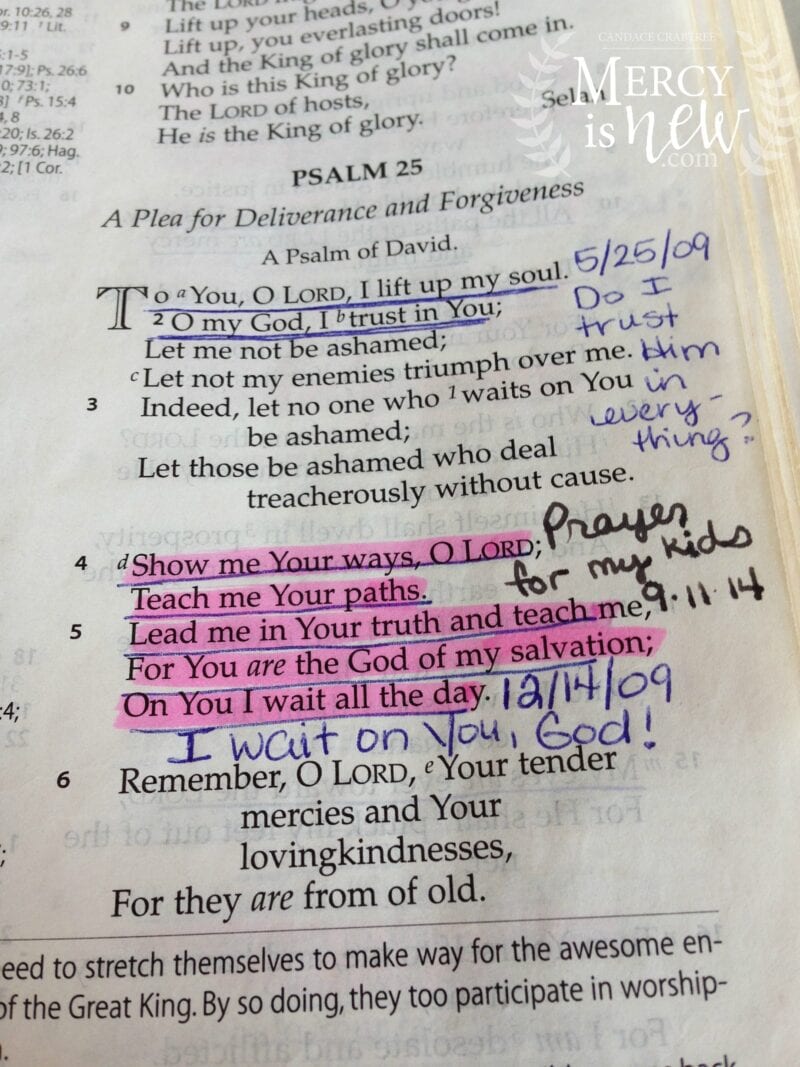 The LORD
or. 10:26, 28
9:11 Lit.
9 Lift up your heads, O
Lift up, you everlasting doors!
And the King of glory shall come in.
:1-5
17:9]; Ps. 26:6
0; 73:1;
8] Ps. 15:4
4, 8
20; Is. 26:2
; 97:6; Hag.
2; [1 Cor.
10 Who is this King of glory?
The LORD of hosts,
He is the King of glory. Selah
CANDACE CRABTREE
MERCY
is new
.com
PSALM 25
A Plea for Deliverance and Forgiveness
A Psalm of David.
To a You, O LORD, I lift up my soul. 5/25/09
2 O my God, I b trust in You; Do I
Let me not be ashamed; trust
c Let not my enemies triumph over me. Him
3 Indeed, let no one who 1 waits on You in
be ashamed; every-
Let those be ashamed who deal thing?
treacherously without cause.
4 d Show me Your ways, O LORD; Prayer
Teach me Your paths. for my kids
5 Lead me in Your truth and teach me, 9·11·14
For You are the God of my salvation;
On You I wait all the day. 12/14/09
I wait on You, God!
:4;
6 Remember, O LORD, e Your tender
mercies and Your
lovingkindnesses,
For they are from of old.
eed to stretch themselves to make way for the awesome en-
of the Great King. By so doing, they too participate in worship-